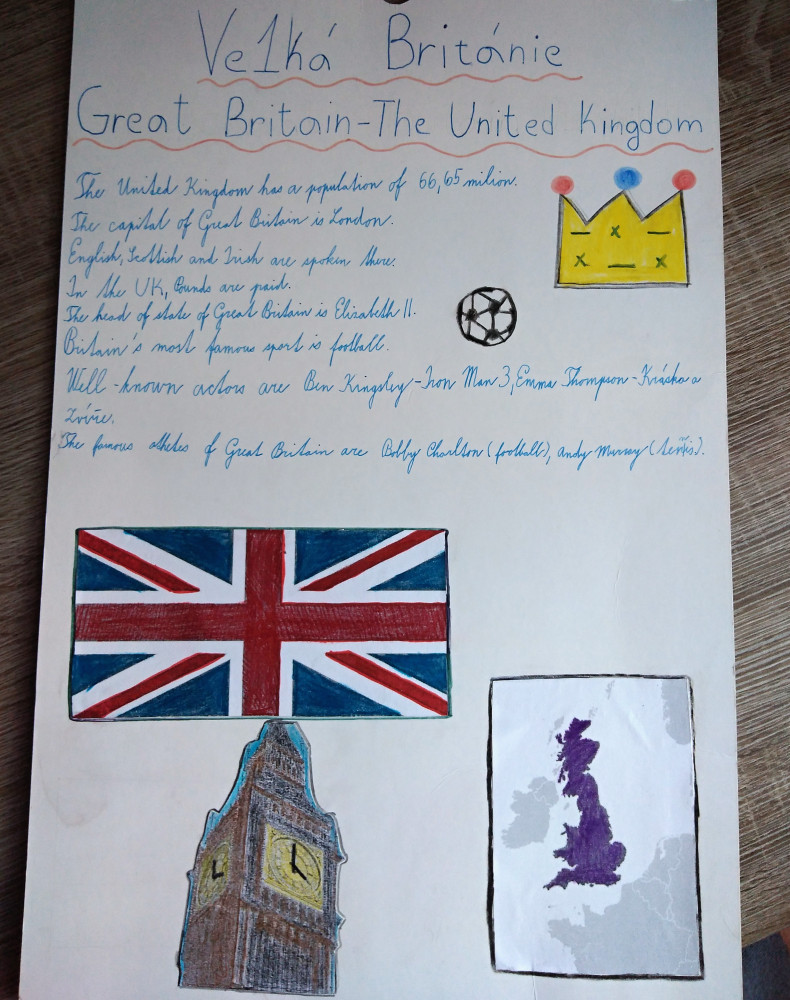 Velká Británie
Great Britain-The United Kingdom
The United Kingdom has a population of 66,65 milion.
The capital of Great Britain is London.
English, Scottish and Irish are spoken there.
In the UK, Pounds are paid.
The head of state of Great Britain is Elisabeth II.
Britain's most famous sport is football.
Well-known actors are Ben Kingsley-Iron Man 3, Emma Thompson-Kráska a
zvíře.
The famous athletes of Great Britain are Bobby Charlton (football), Andy Murray (tenis).